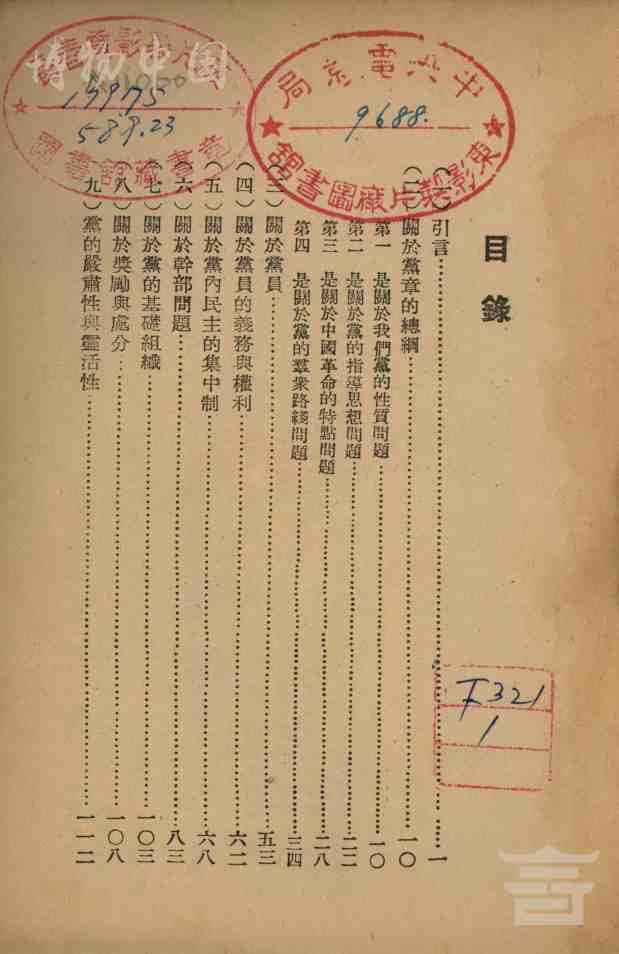 博物中国
19775
589.23
中央電影局
9688.
東影製片廠圖書舘
目錄
（一）引言……一
（二）關於黨章的總綱……一〇
第一 是關於我們黨的性質問題……一〇
第二 是關於黨的指導思想問題……二二
第三 是關於中國革命的特點問題……二八
第四 是關於黨的羣衆路綫問題……三四
（三）關於黨員……五三
（四）關於黨員的義務與權利……六二
（五）關於黨內民主的集中制……六八
（六）關於幹部問題……八三
（七）關於黨的基礎組織……一〇三
（八）關於獎勵與處分……一〇八
（九）黨的嚴肅性與靈活性……一一二
321
1